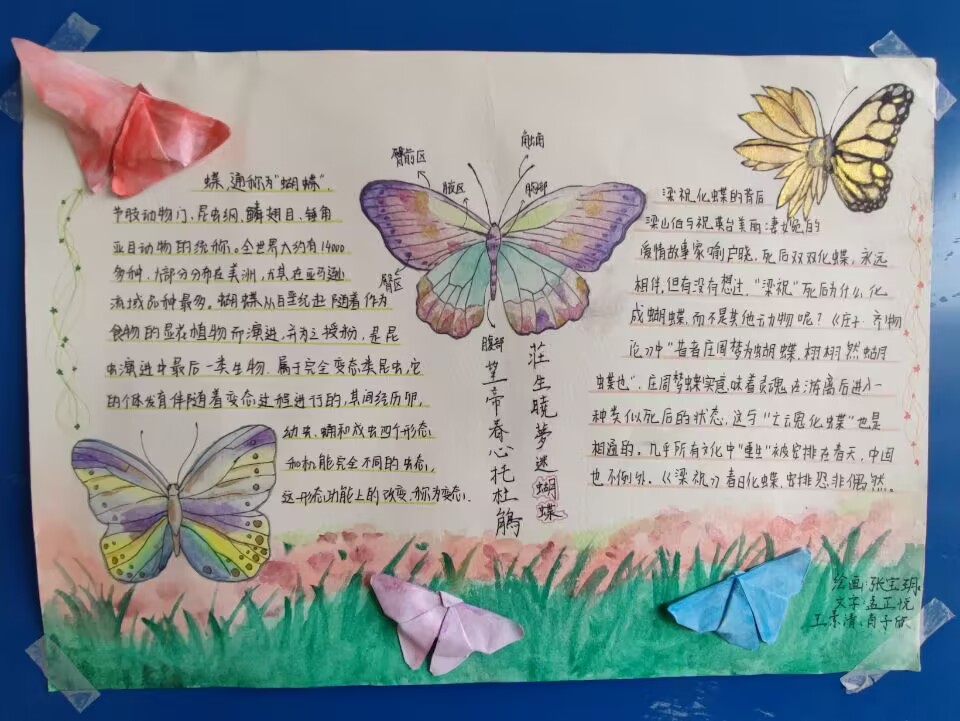 蝶,通称为"蝴蝶"
节肢动物门、昆虫纲、鳞翅目、锤角
亚目动物的统称。全世界大约有14000
多种,大部分分布在美洲,尤其在亚马逊
流域品种最多。蝴蝶从白垩纪起随着作为
食物的显花植物而演进,并为之授粉,是昆
虫演进中最后一类生物。属于完全变态类昆虫,它
的个体发育伴随着变态过程进行的,其间经历卵,
幼虫、蛹和成虫四个形态
和机能完全不同的虫态,
这一形态功能上的改变,称为变态.
臀前区
触角
腋区
胸部
臀区
腹部
莊生曉夢迷蝴蝶
望帝春心托杜鵑
梁祝化蝶的背后
梁山伯与祝英台美丽凄婉的
爱情故事家喻户晓,死后双双化蝶,永远
相伴,但有没有想过,"梁祝"死后为什么化
成蝴蝶,而不是其他动物呢?《庄子·齐物
论》中"昔者庄周梦为蝴蝶,栩栩然蝴
蝶也",庄周梦蝶实意味着灵魂在游离后进入一
种类似死后的状态,这与"亡魂化蝶"也是
相通的。几乎所有文化中"重生"被安排在春天,中国
也不例外。《梁祝》春日化蝶,安排恐非偶然。
绘画:张宝玥
文字:孟正悦
王 清、肖子欣